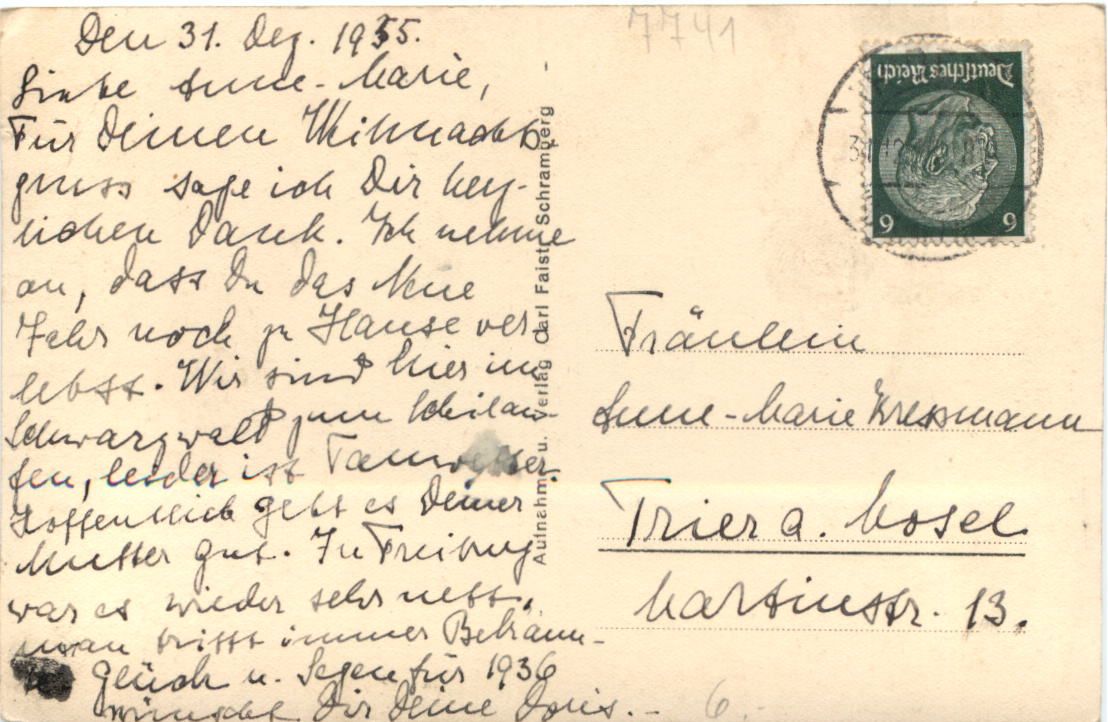 Den 31. Dez. 1935.
Liebe Anne-Marie,
Für Deinen Weihnachts
gruss sage ich Dir herz-
lichen Dank. Ich nehme
an, dass Du das Neue
Jahr noch zu Hause ver
lebst. Wir sind hier im
Schwarzwald zum Schilau-
fen, leider ist Tauwetter.
Hoffentlich geht es Deiner
Mutter gut. In Freiburg
war es wieder sehr nett,
man trifft immer Bekann-
te. Glück u. Segen für 1936
wünscht Dir Deine Doris.-
Aufnahme u. Verlag Carl Faist, Schramberg
7741
Deutsches Reich
6 6
Fräulein
Anne-Marie
Trier a. Mosel
Martinstr. 13.
6.-